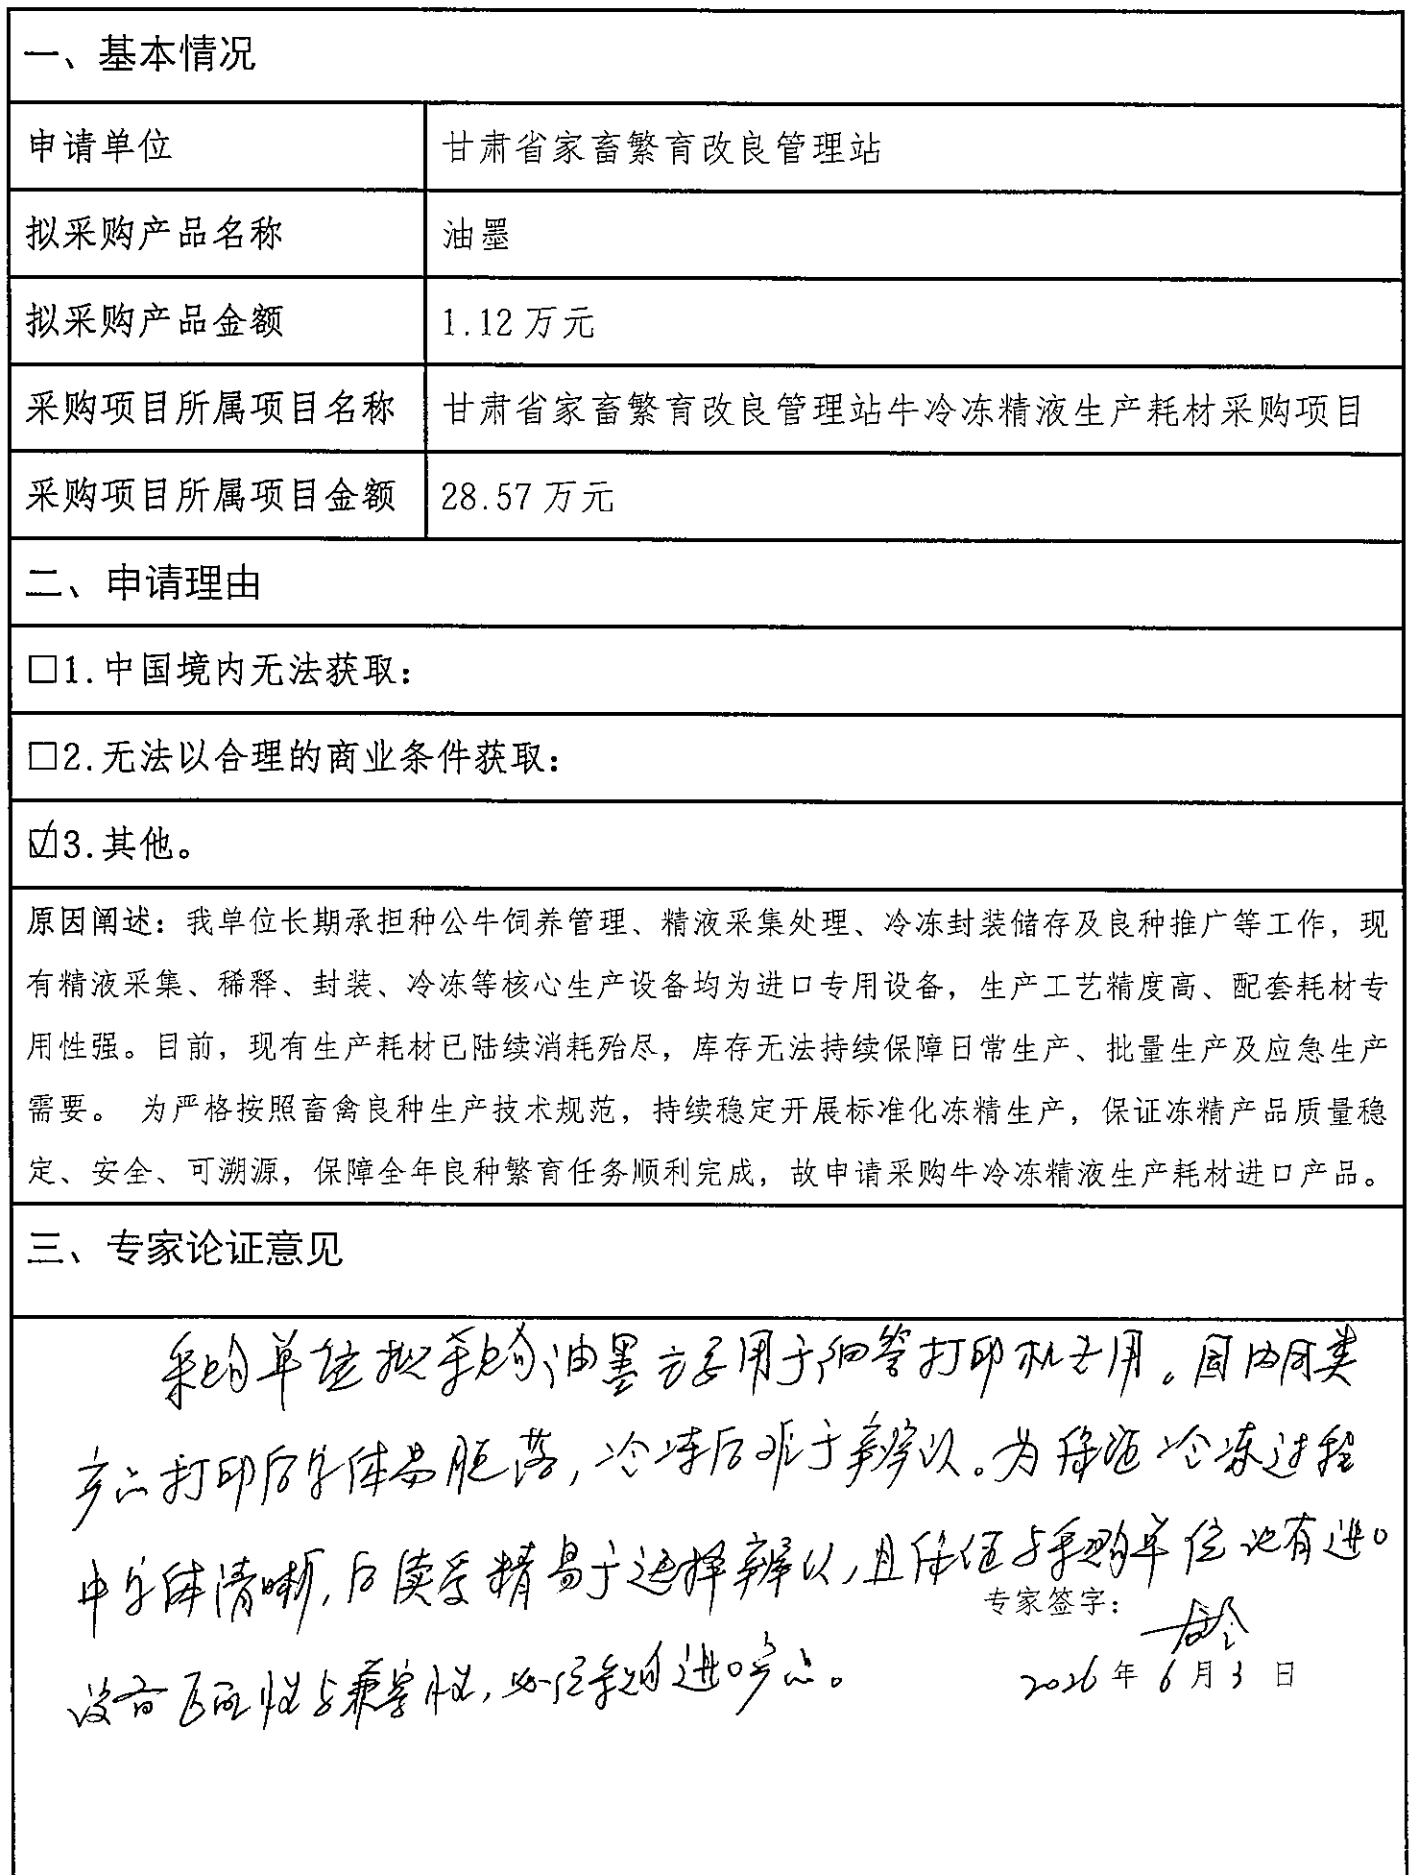 一、基本情况
申请单位 甘肃省家畜繁育改良管理站
拟采购产品名称 油墨
拟采购产品金额 1.12万元
采购项目所属项目名称 甘肃省家畜繁育改良管理站牛冷冻精液生产耗材采购项目
采购项目所属项目金额 28.57万元
二、申请理由
□1.中国境内无法获取：
□2.无法以合理的商业条件获取：
☑3.其他。
原因阐述：我单位长期承担种公牛饲养管理、精液采集处理、冷冻封装储存及良种推广等工作，现
有精液采集、稀释、封装、冷冻等核心生产设备均为进口专用设备，生产工艺精度高、配套耗材专
用性强。目前，现有生产耗材已陆续消耗殆尽，库存无法持续保障日常生产、批量生产及应急生产
需要。 为严格按照畜禽良种生产技术规范，持续稳定开展标准化冻精生产，保证冻精产品质量稳
定、安全、可溯源，保障全年良种繁育任务顺利完成，故申请采购牛冷冻精液生产耗材进口产品。
三、专家论证意见
采购单位拟采购油墨主要用于细管打印机专用。国内同类
产品打印后字体易脱落，冷冻后难于辨认。为保证冷冻过程
中字体清晰，后续受精易于选择辨认，且保证与采购单位现有进口
专家签字：
设备匹配性与兼容性，必须采购进口产品。
2026年6月3日